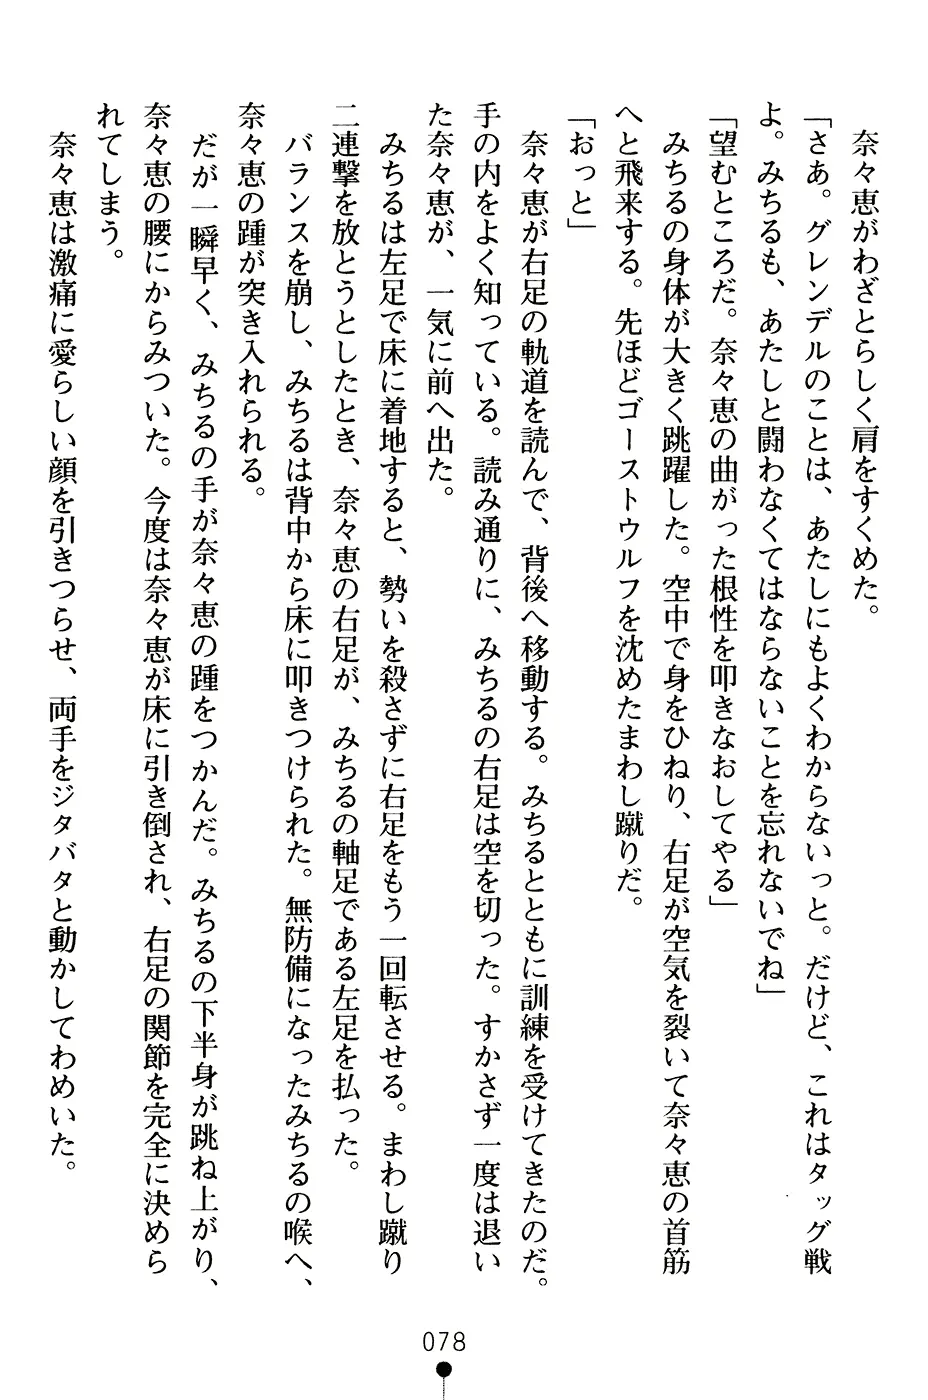 奈々恵がわざとらしく肩をすくめた。
「さあ。グレンデルのことは、あたしにもよくわからないっと。だけど、これはタッグ戦
よ。みちるも、あたしと闘わなくてはならないことを忘れないでね」
「望むところだ。奈々恵の曲がった根性を叩きなおしてやる」
みちるの身体が大きく跳躍した。空中で身をひねり、右足が空気を裂いて奈々恵の首筋
へと飛来する。先ほどゴーストウルフを沈めたまわし蹴りだ。
「おっと」
奈々恵が右足の軌道を読んで、背後へ移動する。みちるとともに訓練を受けてきたのだ。
手の内をよく知っている。読み通りに、みちるの右足は空を切った。すかさず一度は退い
た奈々恵が、一気に前へ出た。
みちるは左足で床に着地すると、勢いを殺さずに右足をもう一回転させる。まわし蹴り
二連撃を放とうとしたとき、奈々恵の右足が、みちるの軸足である左足を払った。
バランスを崩し、みちるは背中から床に叩きつけられた。無防備になったみちるの喉へ、
奈々恵の踵が突き入れられる。
だが一瞬早く、みちるの手が奈々恵の踵をつかんだ。みちるの下半身が跳ね上がり、
奈々恵の腰にからみついた。今度は奈々恵が床に引き倒され、右足の関節を完全に決めら
れてしまう。
奈々恵は激痛に愛らしい顔を引きつらせ、両手をジタバタと動かしてわめいた。
078